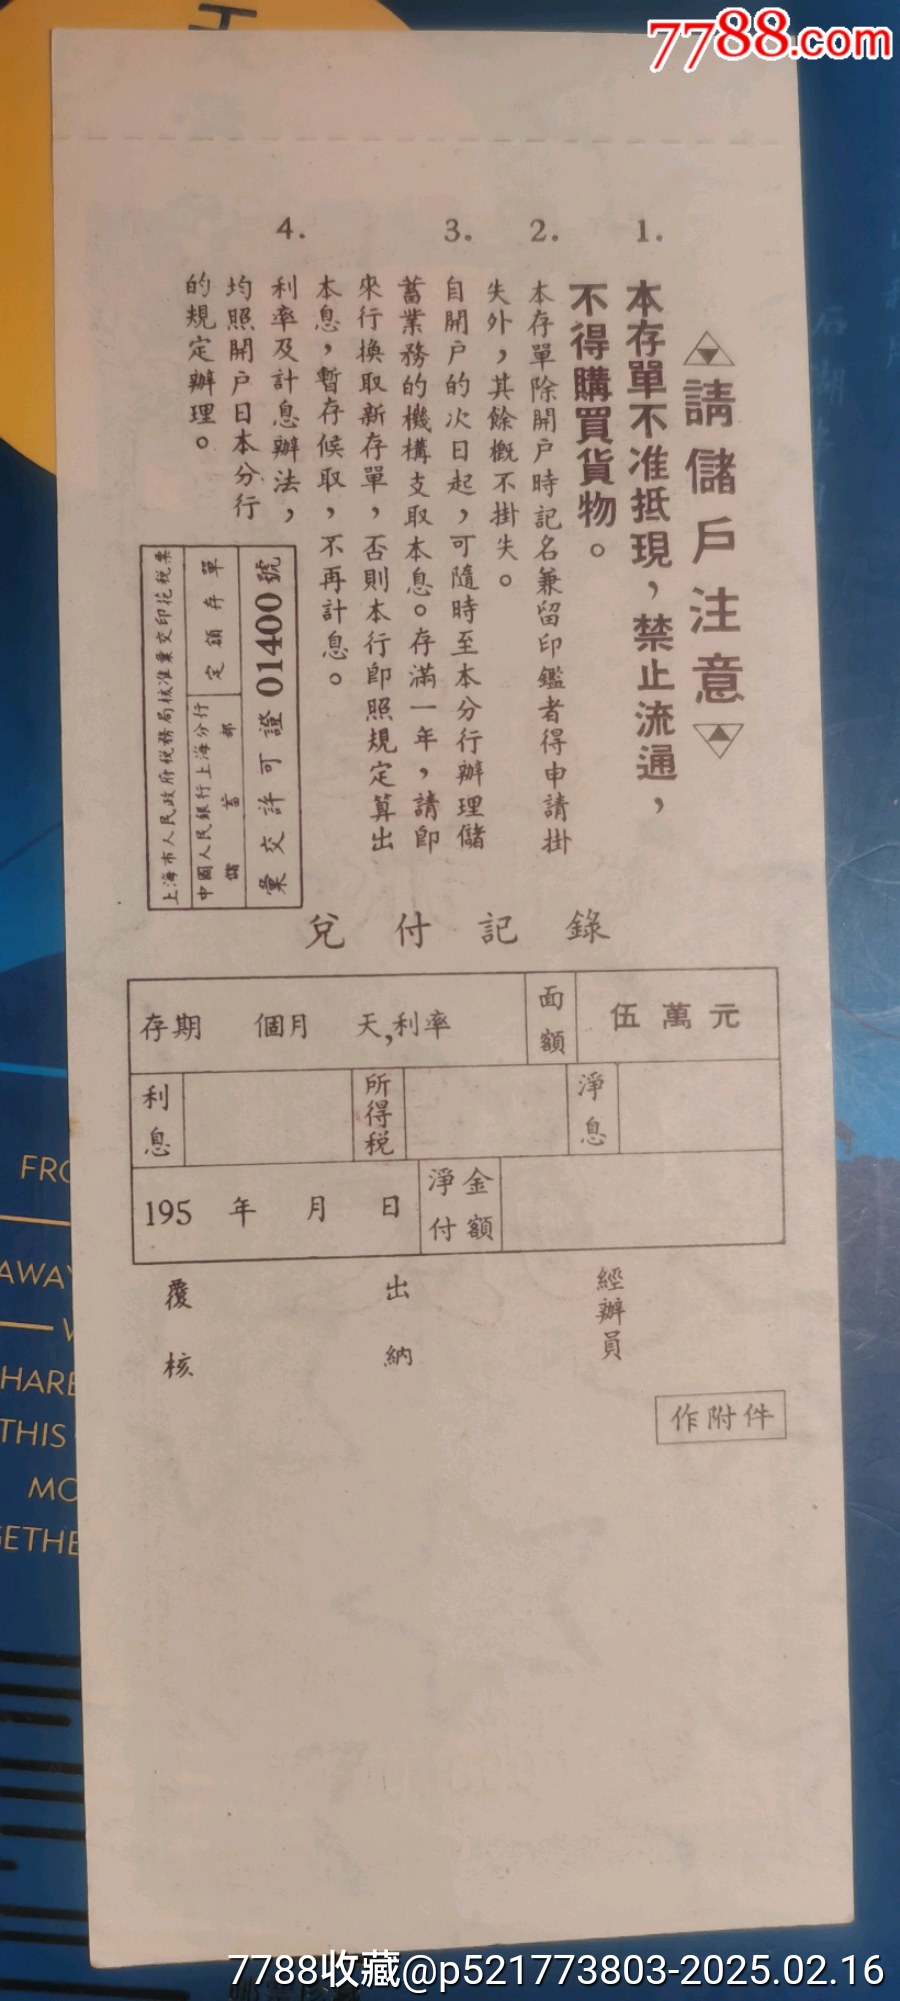 7788.com
請儲戶注意
1.
本存單不准抵現，禁止流通，
不得購買貨物。
2.
本存單除開戶時記名兼留印鑑者得申請掛
失外，其餘概不掛失。
3.
自開戶的次日起，可隨時至本分行辦理儲
蓄業務的機構支取本息。存滿一年，請卽
來行換取新存單，否則本行卽照規定算出
本息，暫存候取，不再計息。
4.
利率及計息辦法，
均照開戶日本分行
的規定辦理。
上海市人民政府稅務局核准彙交印花稅票
中國人民銀行上海分行
儲蓄部
定額存單
彙交許可證01400號
兌付記錄
存期 個月 天,利率
面額
伍萬元
利息
所得稅
淨息
195 年 月 日
淨付
金額
覆核
出納
經辦員
作附件
FRO
AWAY
W
HARE
THIS
MO
GETHE
7788收藏@p521773803-2025.02.16